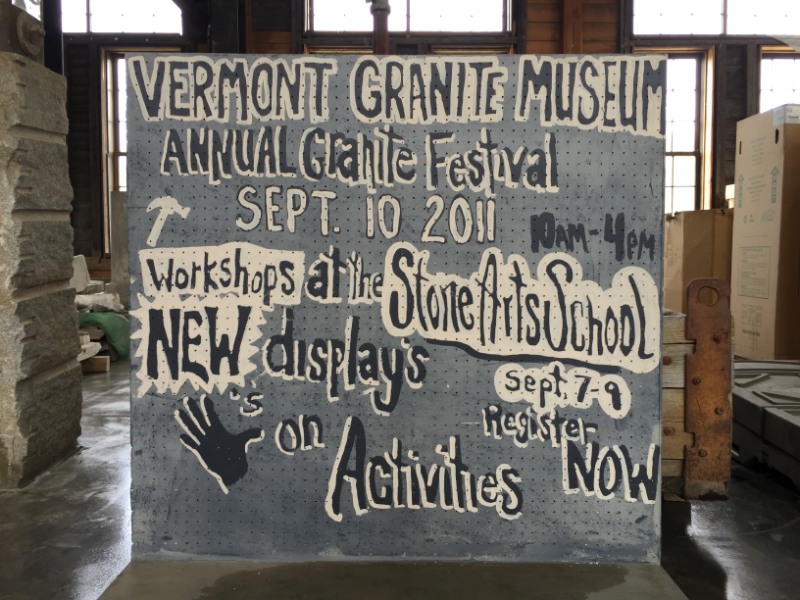 VERMONT GRANITE MUSEUM
ANNUAL Granite Festival
SEPT. 10 2011
10AM-4PM
Workshops at the Stone Arts School
NEW display's
sept. 7-9
's on Activities
Register
NOW